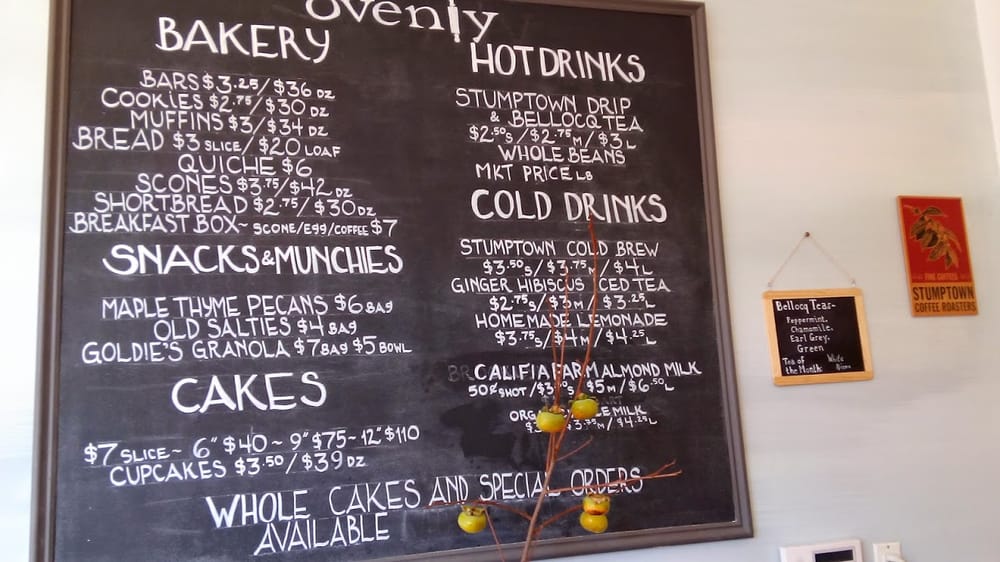 ovenly
BAKERY
BARS $3.25/$36 DZ
COOKIES $2.75/$30 DZ
MUFFINS $3/$34 DZ
BREAD $3 SLICE/$20 LOAF
QUICHE $6
SCONES $3.75/$42 DZ
SHORTBREAD $2.75/$30 DZ
BREAKFAST BOX~ SCONE/EGG/COFFEE $7
SNACKS & MUNCHIES
MAPLE THYME PECANS $6 BAG
OLD SALTIES $4 BAG
GOLDIE'S GRANOLA $7 BAG $5 BOWL
CAKES
$7 SLICE~ 6" $40 ~ 9" $75 ~ 12" $110
CUPCAKES $3.50/$39 DZ
HOT DRINKS
STUMPTOWN DRIP
& BELLOCQ TEA
$2.50S/$2.75M/$3L
WHOLE BEANS
MKT PRICE LB
COLD DRINKS
STUMPTOWN COLD BREW
$3.50S/$3.75M/$4L
GINGER HIBISCUS ICED TEA
$2.75S/$3M/$3.25L
HOMEMADE LEMONADE
$3.75S/$4M/$4.25L
CALIFIA FARM ALMOND MILK
50¢ SHOT/$3. S/$5M/$6.50L
MILK
$3.75M/$4.25L
WHOLE CAKES AND SPECIAL ORDERS
AVAILABLE
Bellocq Teas-
Peppermint,
Chamomile,
Earl Grey,
Green
Tea of
the Month
White
FINE COFFEES
STUMPTOWN
COFFEE ROASTERS